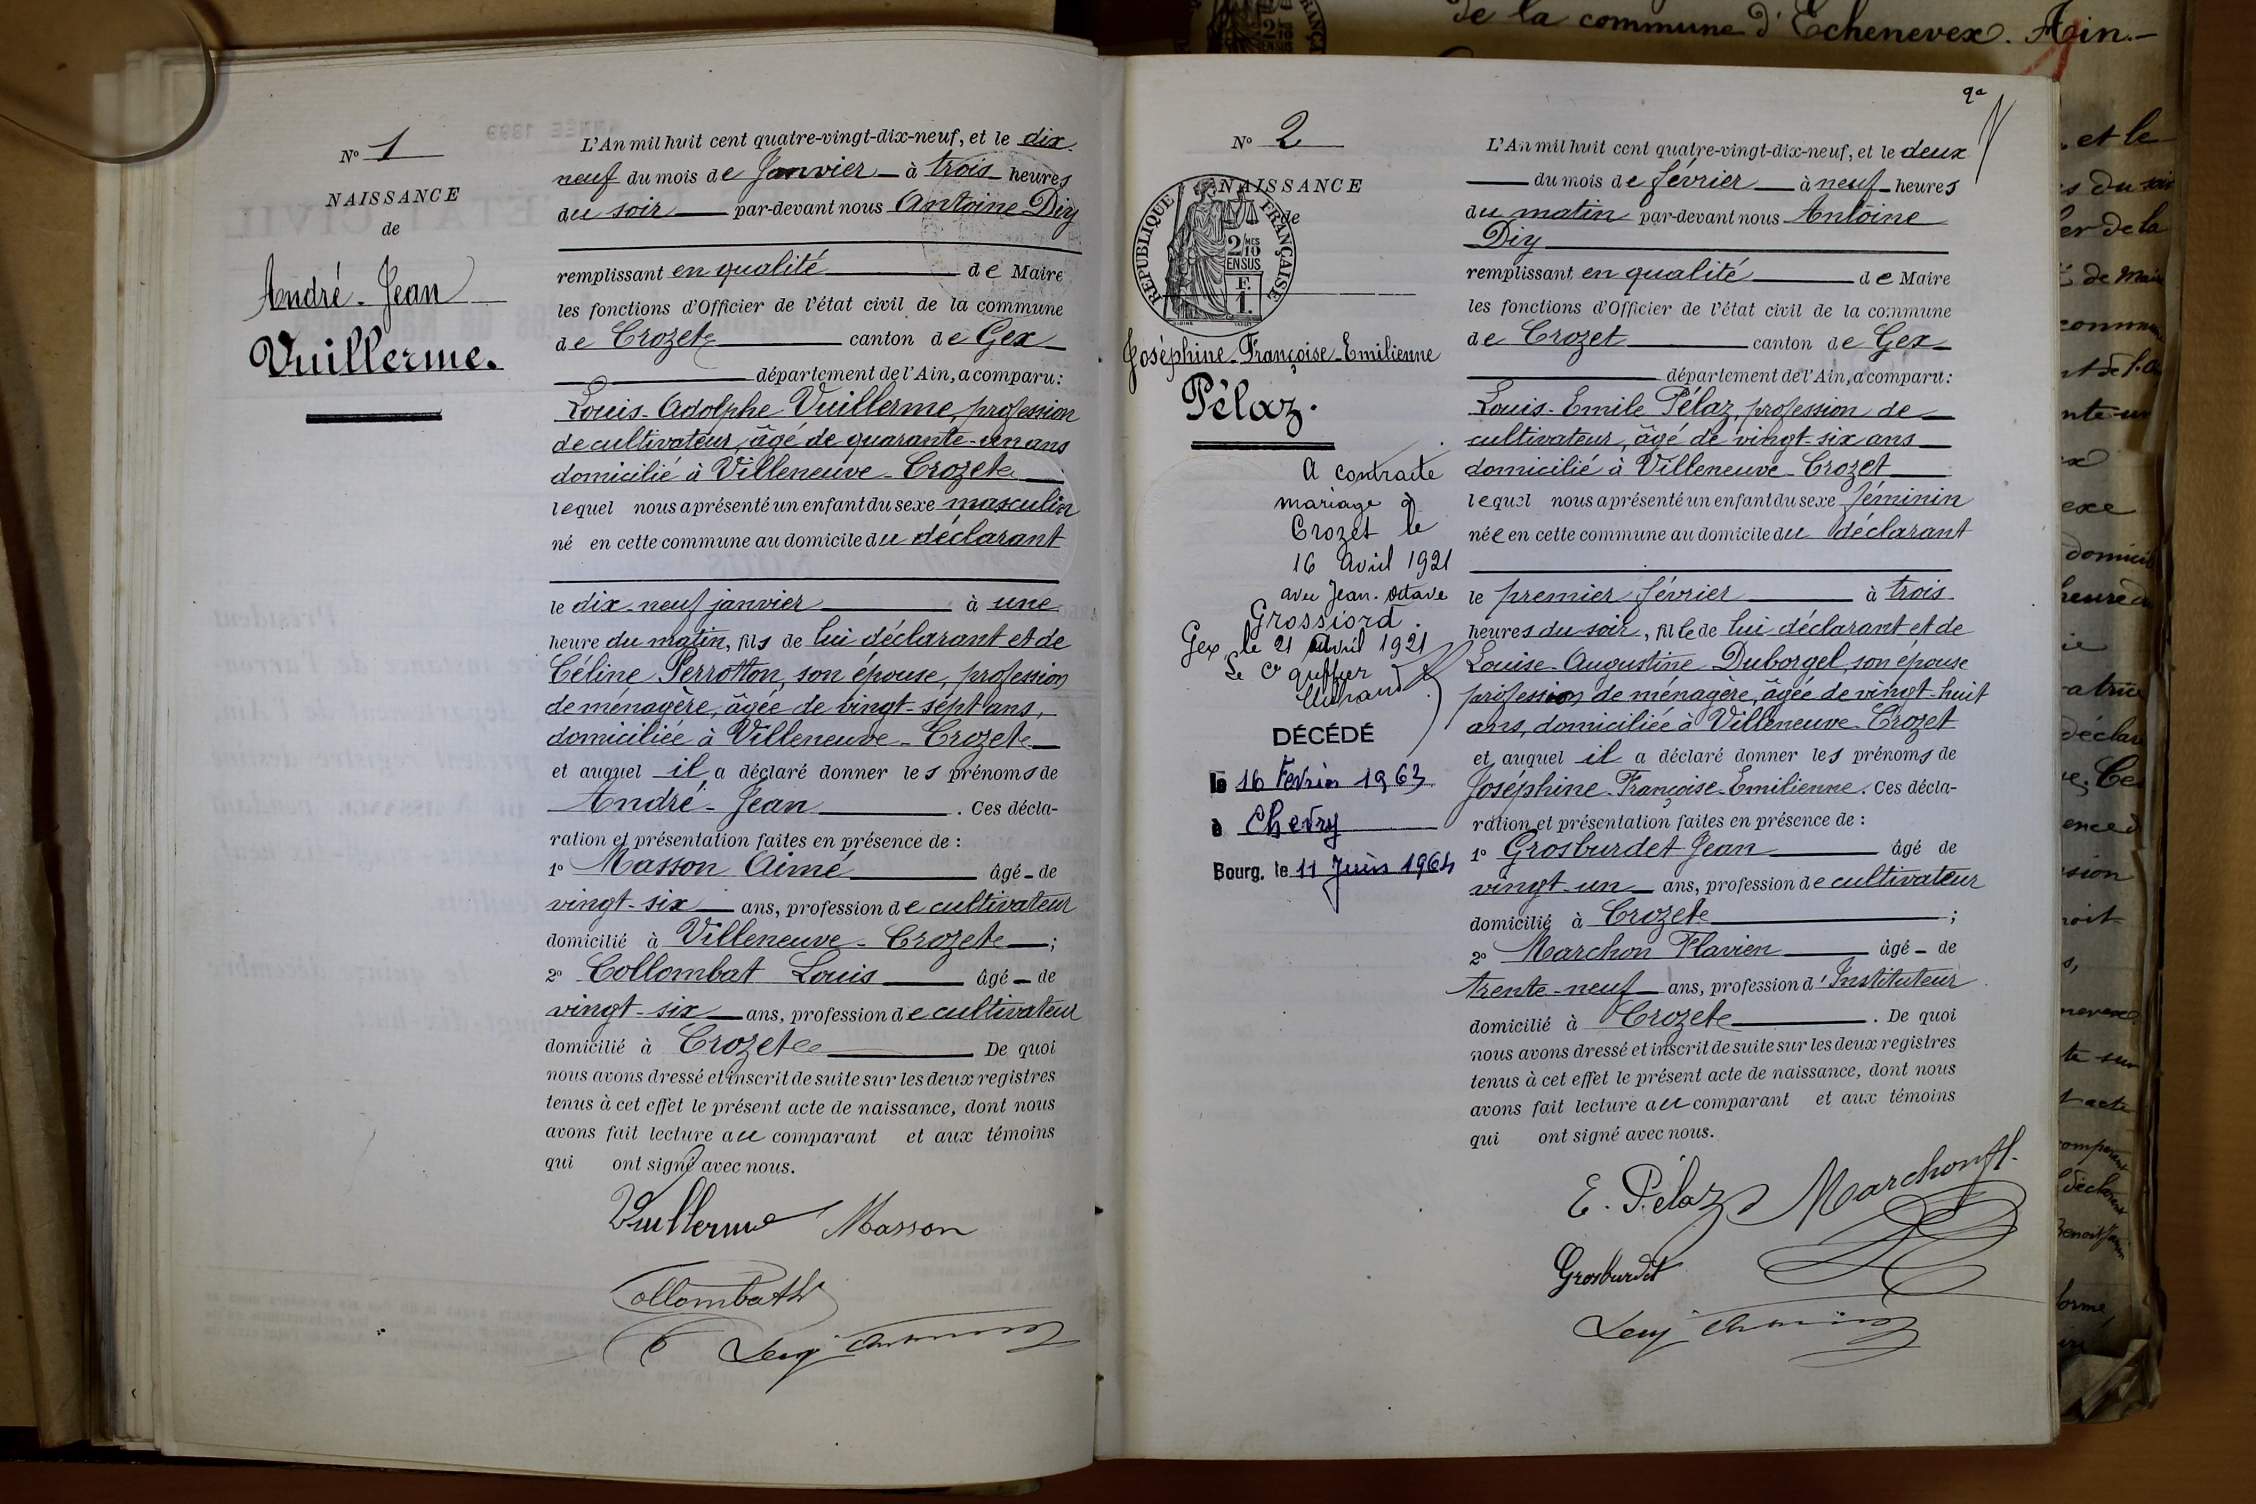 N° 1
NAISSANCE
de
André-Jean
Vuillerme.
L'An mil huit cent quatre-vingt-dix-neuf, et le dix-
neuf du mois de Janvier à trois heures
du soir par-devant nous Antoine Diy
remplissant en qualité de Maire
les fonctions d'Officier de l'état civil de la commune
de Crozet canton de Gex
département de l'Ain, a comparu:
Louis-Adolphe Vuillerme, profession
de cultivateur, âgé de quarante-un ans
domicilié à Villeneuve-Crozet
lequel nous a présenté un enfant du sexe masculin
né en cette commune au domicile du déclarant
le dix-neuf janvier à une
heure du matin, fils de lui déclarant et de
Céline Perrotton, son épouse, profession
de ménagère, âgée de vingt-sept ans,
domiciliée à Villeneuve-Crozet
et auquel il a déclaré donner les prénoms de
André-Jean. Ces décla-
ration et présentation faites en présence de :
1° Masson Aimé âgé de
vingt-six ans, profession de cultivateur
domicilié à Villeneuve-Crozet ;
2° Collombat Louis âgé de
vingt-six ans, profession de cultivateur
domicilié à Crozet De quoi
nous avons dressé et inscrit de suite sur les deux registres
tenus à cet effet le présent acte de naissance, dont nous
avons fait lecture au comparant et aux témoins
qui ont signé avec nous.
Vuillerme Masson
Collombat
de la commune d'Echenevex. Ain.-
N° 2
NAISSANCE
de
REPUBLIQUE FRANÇAISE
2 MES
10
EN SUS
F.
1.
Joséphine-Françoise-Emilienne
Pélaz.
A contracté
mariage à
Crozet le
16 Avril 1921
avec Jean-Octave
Grossiord.
Gex le 21 Avril 1921
Le Cs greffier
DÉCÉDÉ
le 16 Février 1963
à Chevry
Bourg, le 11 Juin 1964
L'An mil huit cent quatre-vingt-dix-neuf, et le deux
du mois de février à neuf heures
du matin par-devant nous Antoine
Diy
remplissant en qualité de Maire
les fonctions d'Officier de l'état civil de la commune
de Crozet canton de Gex
département de l'Ain, a comparu:
Louis-Emile Pélaz, profession de
cultivateur, âgé de vingt-six ans
domicilié à Villeneuve-Crozet
lequel nous a présenté un enfant du sexe féminin
née en cette commune au domicile du déclarant
le premier février à trois
heures du soir, fille de lui déclarant et de
Louise-Augustine Duborgel, son épouse
profession de ménagère, âgée de vingt-huit
ans, domiciliée à Villeneuve-Crozet
et auquel il a déclaré donner les prénoms de
Joséphine-Françoise-Emilienne. Ces décla-
ration et présentation faites en présence de :
1° Grosburdet Jean âgé de
vingt-un ans, profession de cultivateur
domicilié à Crozet ;
2° Marchon Flavien âgé de
trente-neuf ans, profession d'Instituteur
domicilié à Crozet. De quoi
nous avons dressé et inscrit de suite sur les deux registres
tenus à cet effet le présent acte de naissance, dont nous
avons fait lecture au comparant et aux témoins
qui ont signé avec nous.
E. Pélaz Marchon fl.
Grosburdet